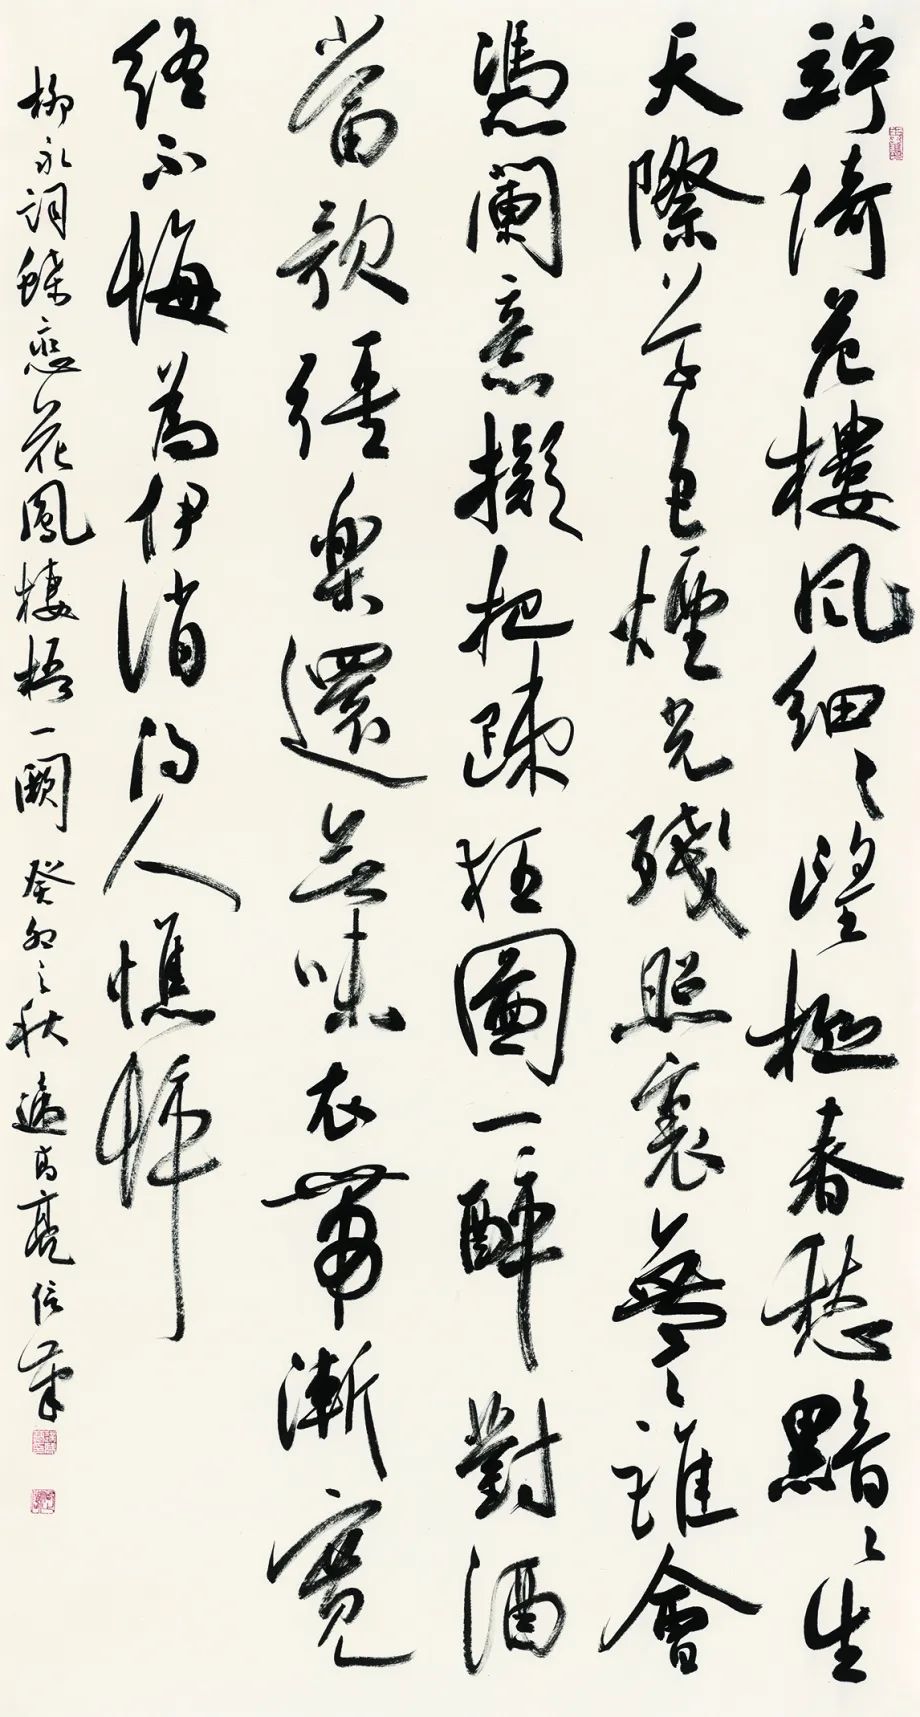 竚倚危樓風細〻望極春愁黯〻生
天際草色煙光殘照裏無言誰會
憑闌意擬把疎狂圖一醉對酒
當歌強樂還無味衣帶漸寬
終不悔為伊消得人憔悴
柳永詞蝶戀花鳳棲梧一闋 癸卯之秋 高亮信筆